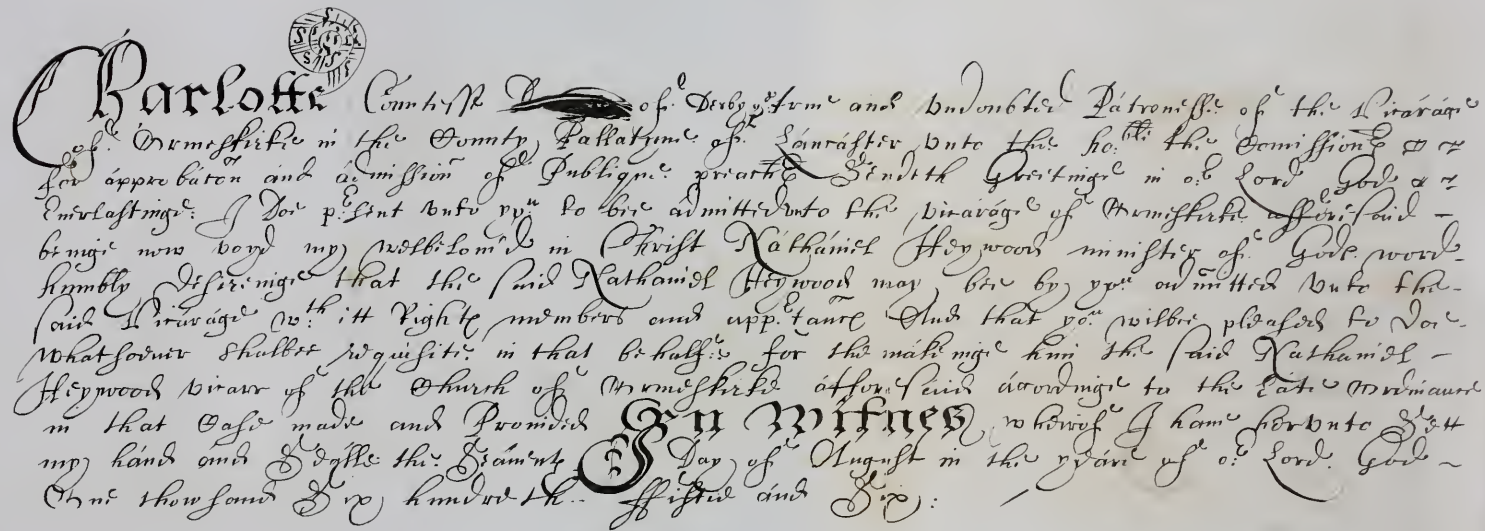 Charlotte Countesse of Derby ye. true and vndoubted Patronesse of the Vicarage
of Ormeskirke in the County Pallatyne of Lancaster vnto the ho:ble the Comissionrs
for approbacon and admission of Publique preachers Sendeth Greetinge in or Lord God
Everlastinge: I Doe pesent vnto you to bee admitted vnto the vicarage of Ormeskirke afforesaid –
beinge now voyd my welbeloved in Christ Nathaniel Heywood minister of Gods word
humbly desireinge that the said Nathaniel Heywood may bee by you admitted vnto the –
said Vicarage wth itt Rights members and apptances And that you wilbee pleased to doe
whatsoever shalbee requisite in that behalfe for the makeinge him the said Nathaniel –
Heywood vicarr of the Church of Ormeskirke afforesaid accordinge to the late Ordinance
in that Case made and Provided In Witnes wherof I haue hervnto Sett
my hand and Sealle the Seauenth Day of August in the yeare of or Lord God –
One thowsand Six hundreth ffiftie and Six: